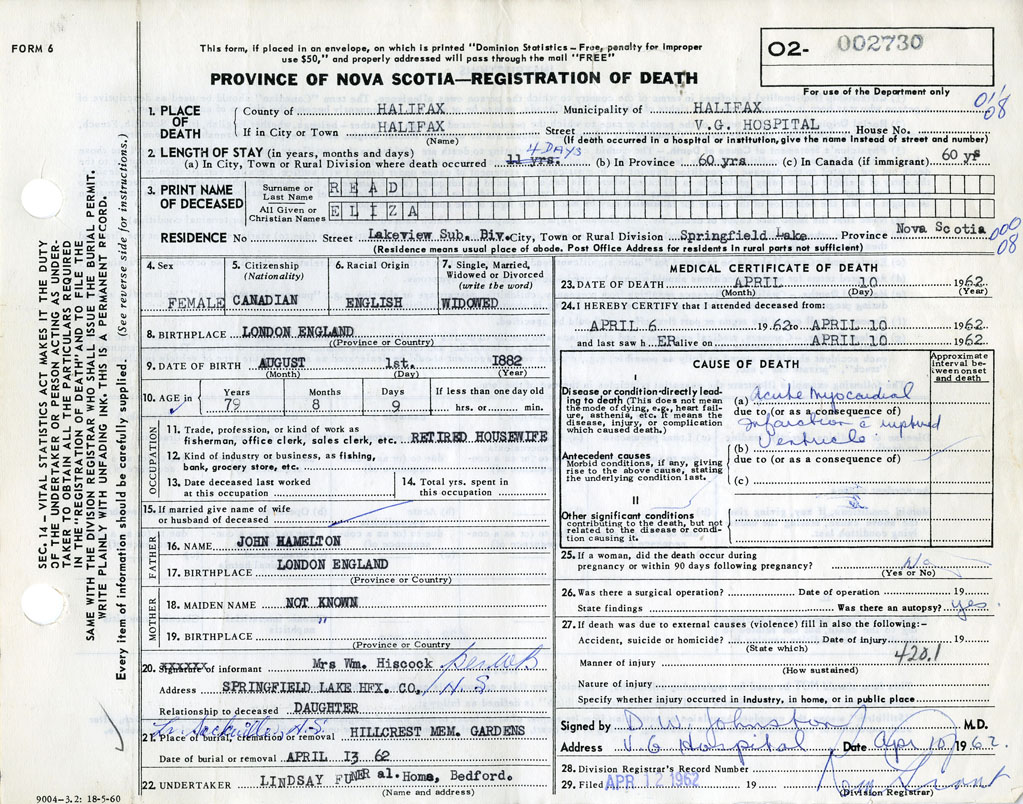 FORM 6
This form, if placed in an envelope, on which is printed "Dominion Statistics – Free, penalty for improper
use $50," and properly addressed will pass through the mail "FREE"
PROVINCE OF NOVA SCOTIA—REGISTRATION OF DEATH
O2- 002730
For use of the Department only
01'
08
1. PLACE OF DEATH
County of HALIFAX Municipality of HALIFAX
If in City or Town HALIFAX Street V.G. HOSPITAL House No.
(Name) (If death occurred in a hospital or institution, give the name instead of street and number)
2. LENGTH OF STAY (in years, months and days) 4 DAYS
(a) In City, Town or Rural Division where death occurred 11 yrs. (b) In Province 60 yrs (c) In Canada (if immigrant) 60 yrs
3. PRINT NAME OF DECEASED
Surname or Last Name READ
All Given or Christian Names ELIZA
RESIDENCE No Street Lakeview Sub. Div. City, Town or Rural Division Springfield Lake Province Nova Scotia
000
08
(Residence means usual place of abode. Post Office Address for residents in rural parts not sufficient)
4. Sex FEMALE
5. Citizenship (Nationality) CANADIAN
6. Racial Origin ENGLISH
7. Single, Married, Widowed or Divorced (write the word) WIDOWED
8. BIRTHPLACE LONDON ENGLAND
(Province or Country)
9. DATE OF BIRTH AUGUST 1st. 1882
(Month) (Day) (Year)
10. AGE in Years 79 Months 8 Days 9 If less than one day old hrs. or min.
OCCUPATION
11. Trade, profession, or kind of work as
fisherman, office clerk, sales clerk, etc. RETIRED HOUSEWIFE
12. Kind of industry or business, as fishing,
bank, grocery store, etc.
13. Date deceased last worked
at this occupation
14. Total yrs. spent in
this occupation
15. If married give name of wife
or husband of deceased
FATHER
16. NAME JOHN HAMELTON
17. BIRTHPLACE LONDON ENGLAND
(Province or Country)
MOTHER
18. MAIDEN NAME NOT KNOWN
19. BIRTHPLACE "
(Province or Country)
20. Signature of informant Mrs Wm. Hiscock
Address SPRINGFIELD LAKE HFX. CO. N.S
Relationship to deceased DAUGHTER
Lr. Sackville, N.S
21. Place of burial, cremation or removal HILLCREST MEM. GARDENS
Date of burial or removal APRIL 13 62
22. UNDERTAKER LINDSAY FUNERal. Home, Bedford.
(Name and address)
9004–3.2: 18-5-60
MEDICAL CERTIFICATE OF DEATH
23. DATE OF DEATH APRIL 10 1962
(Month) (Day) (Year)
24. I HEREBY CERTIFY that I attended deceased from:
APRIL 6 1962 to APRIL 10 1962
and last saw h ER alive on APRIL 10 1962
CAUSE OF DEATH
Approximate interval between onset and death
I
Disease or condition directly leading to death (This does not mean the mode of dying, e.g., heart failure, asthenia, etc. It means the disease, injury, or complication which caused death)
(a) Acute Myocardial
due to (or as a consequence of)
Infarction c̄ ruptured
Ventricle
Antecedent causes
Morbid conditions, if any, giving rise to the above cause, stating the underlying condition last.
(b)
due to (or as a consequence of)
(c)
II
Other significant conditions
contributing to the death, but not related to the disease or condition causing it.
25. If a woman, did the death occur during
pregnancy or within 90 days following pregnancy? No
(Yes or No)
26. Was there a surgical operation? Date of operation 19
State findings Was there an autopsy? yes
27. If death was due to external causes (violence) fill in also the following:–
Accident, suicide or homicide? Date of injury 19
(State which) 420.1
Manner of injury
(How sustained)
Nature of injury
Specify whether injury occurred in industry, in home, or in public place
Signed by D. W. Johnston M.D.
Address V G Hospital Date Apr 10 1962.
28. Division Registrar's Record Number
29. Filed APR 12 1962 19
(Division Registrar)
SEC. 14 – VITAL STATISTICS ACT MAKES IT THE DUTY
OF THE UNDERTAKER OR PERSON ACTING AS UNDER-
TAKER TO OBTAIN ALL THE PARTICULARS REQUIRED
IN THE "REGISTRATION OF DEATH" AND TO FILE THE
SAME WITH THE DIVISION REGISTRAR WHO SHALL ISSUE THE BURIAL PERMIT.
WRITE PLAINLY WITH UNFADING INK. THIS IS A PERMANENT RECORD.
Every item of information should be carefully supplied. (See reverse side for instructions.)